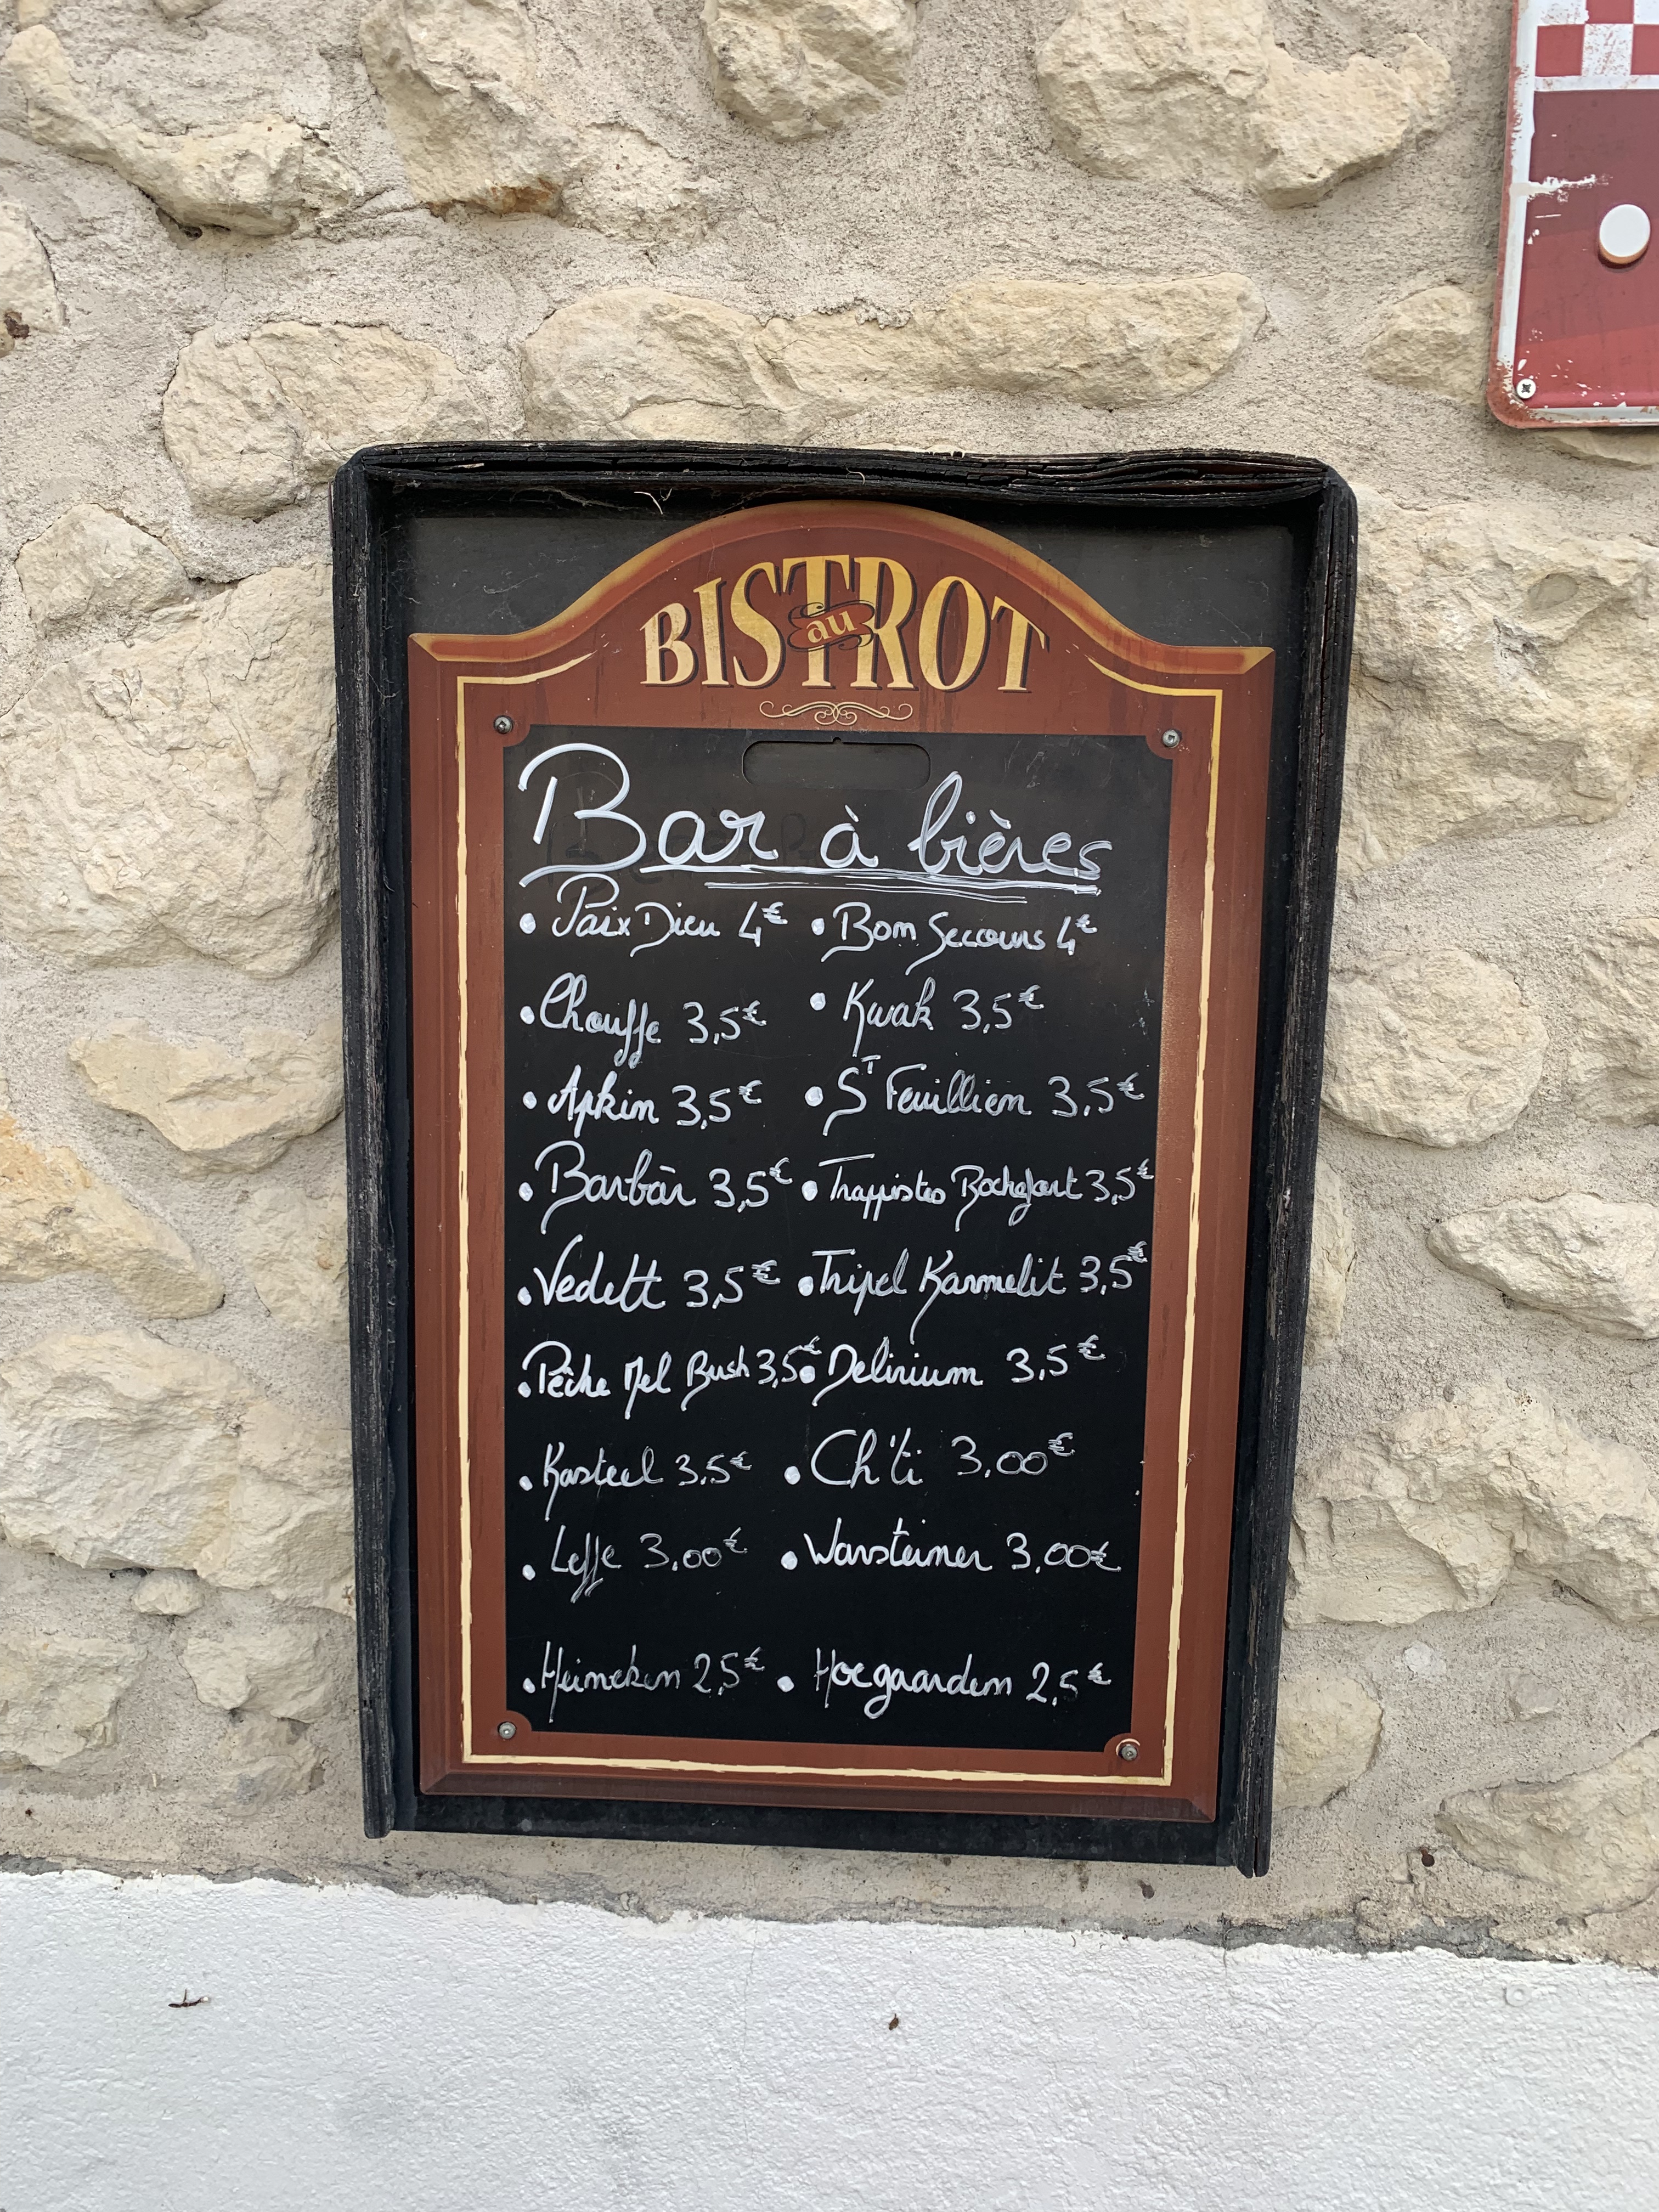 BISTROT
au
Bar à bières
• Paix Dieu 4€ • Bon Secours 4€
• Chouffe 3,5€ • Kwak 3,5€
• Apkin 3,5€ • ST Feuillien 3,5€
• Barbàr 3,5€ • Trappistes Rochefort 3,5€
• Vedett 3,5€ • Tripel Karmelit 3,5€
• Pêche Mel Bush 3,5€ • Delirium 3,5€
• Kasteel 3.5€ • Ch'ti 3,00€
• Leffe 3,00€ • Warsteiner 3,00€
• Heineken 2,5€ • Hoegaarden 2,5€